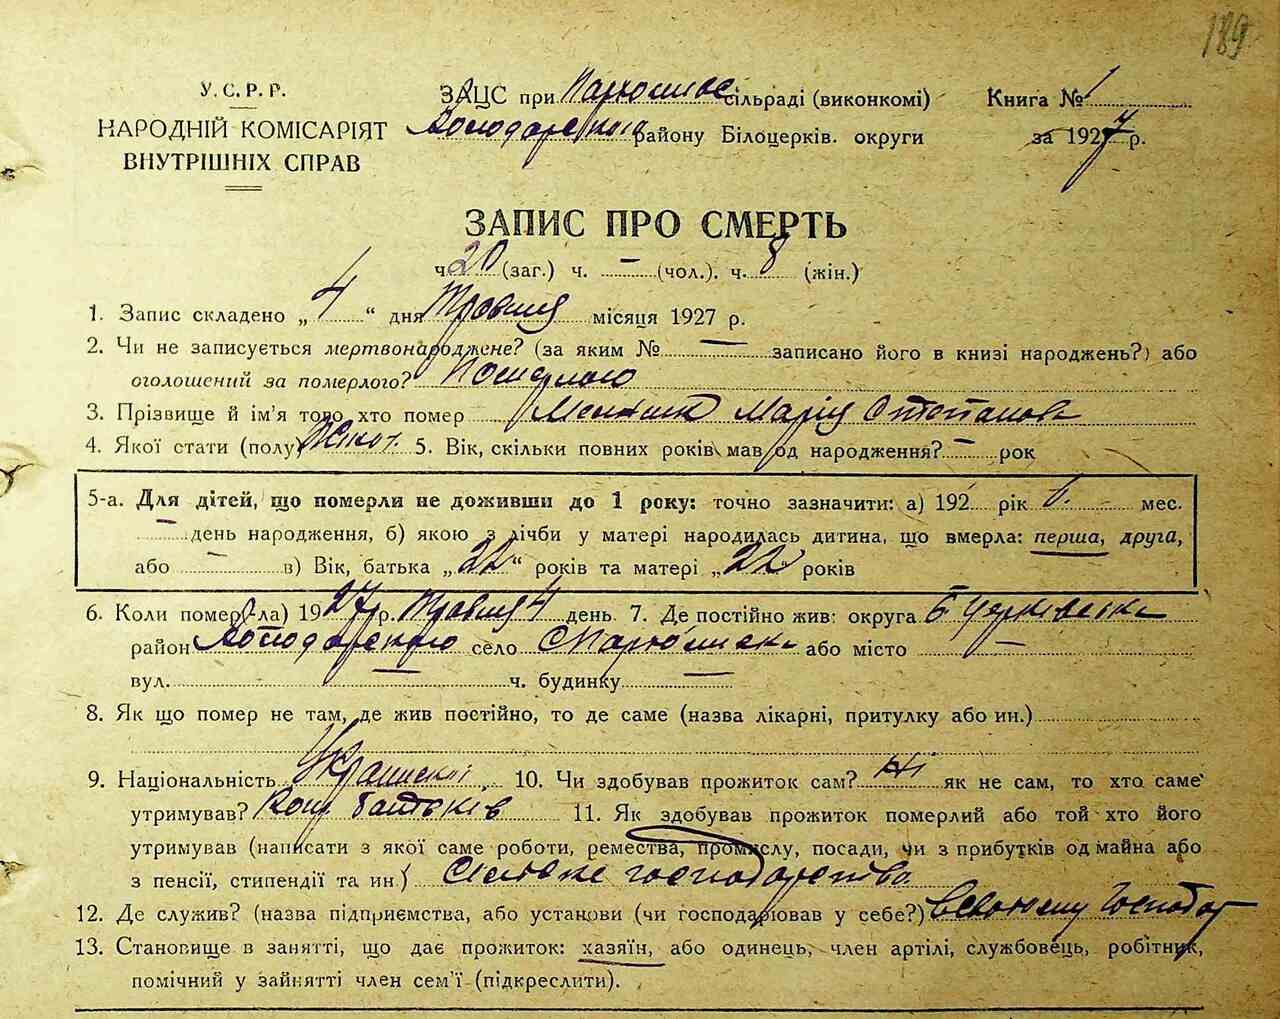 189
У. С. Р. Р.
НАРОДНІЙ КОМІСАРІЯТ
ВНУТРІШНІХ СПРАВ
ЗАЦС при сільраді (виконкомі)
Володарського району Білоцерків. округи
Книга № 1
за 1927 р.
ЗАПИС ПРО СМЕРТЬ
ч 20 (заг.) ч. – (чол.). ч. 8 (жін.)
1. Запис складено „ 4 “ дня Травня місяця 1927 р.
2. Чи не записується мертвонароджене? (за яким № — записано його в книзі народжень?) або
оголошений за померлого? Померлою
3. Прізвище й ім'я того, хто помер Марія Степанова
4. Якої стати (полу) Жіноч. 5. Вік, скільки повних років мав од народження? – рок
5-а. Для дітей, що померли не доживши до 1 року: точно зазначити: а) 192 рік мес.
день народження, б) якою з лічби у матері народилась дитина, що вмерла: перша, друга,
або — в) Вік, батька „ 22 “ років та матері „ 22 років
6. Коли помер(ла) 1927 р. Травня 4 день. 7. Де постійно жив: округа Б Церківська
район Володарського село або місто —
вул. — ч. будинку —
8. Як що помер не там, де жив постійно, то де саме (назва лікарні, притулку або ин.)
9. Національність 10. Чи здобував прожиток сам? Ні як не сам, то хто саме
утримував? батьків 11. Як здобував прожиток померлий або той хто його
утримував (написати з якої саме роботи, ремества, промислу, посади, чи з прибутків од майна або
з пенсії, стипендії та ин.) Сільське господарство
12. Де служив? (назва підприємства, або установи (чи господарював у себе?) В своєму господар
13. Становище в занятті, що дає прожиток: хазяїн, або одинець, член артілі, службовець, робітник,
помічний у зайнятті член сем'ї (підкреслити).